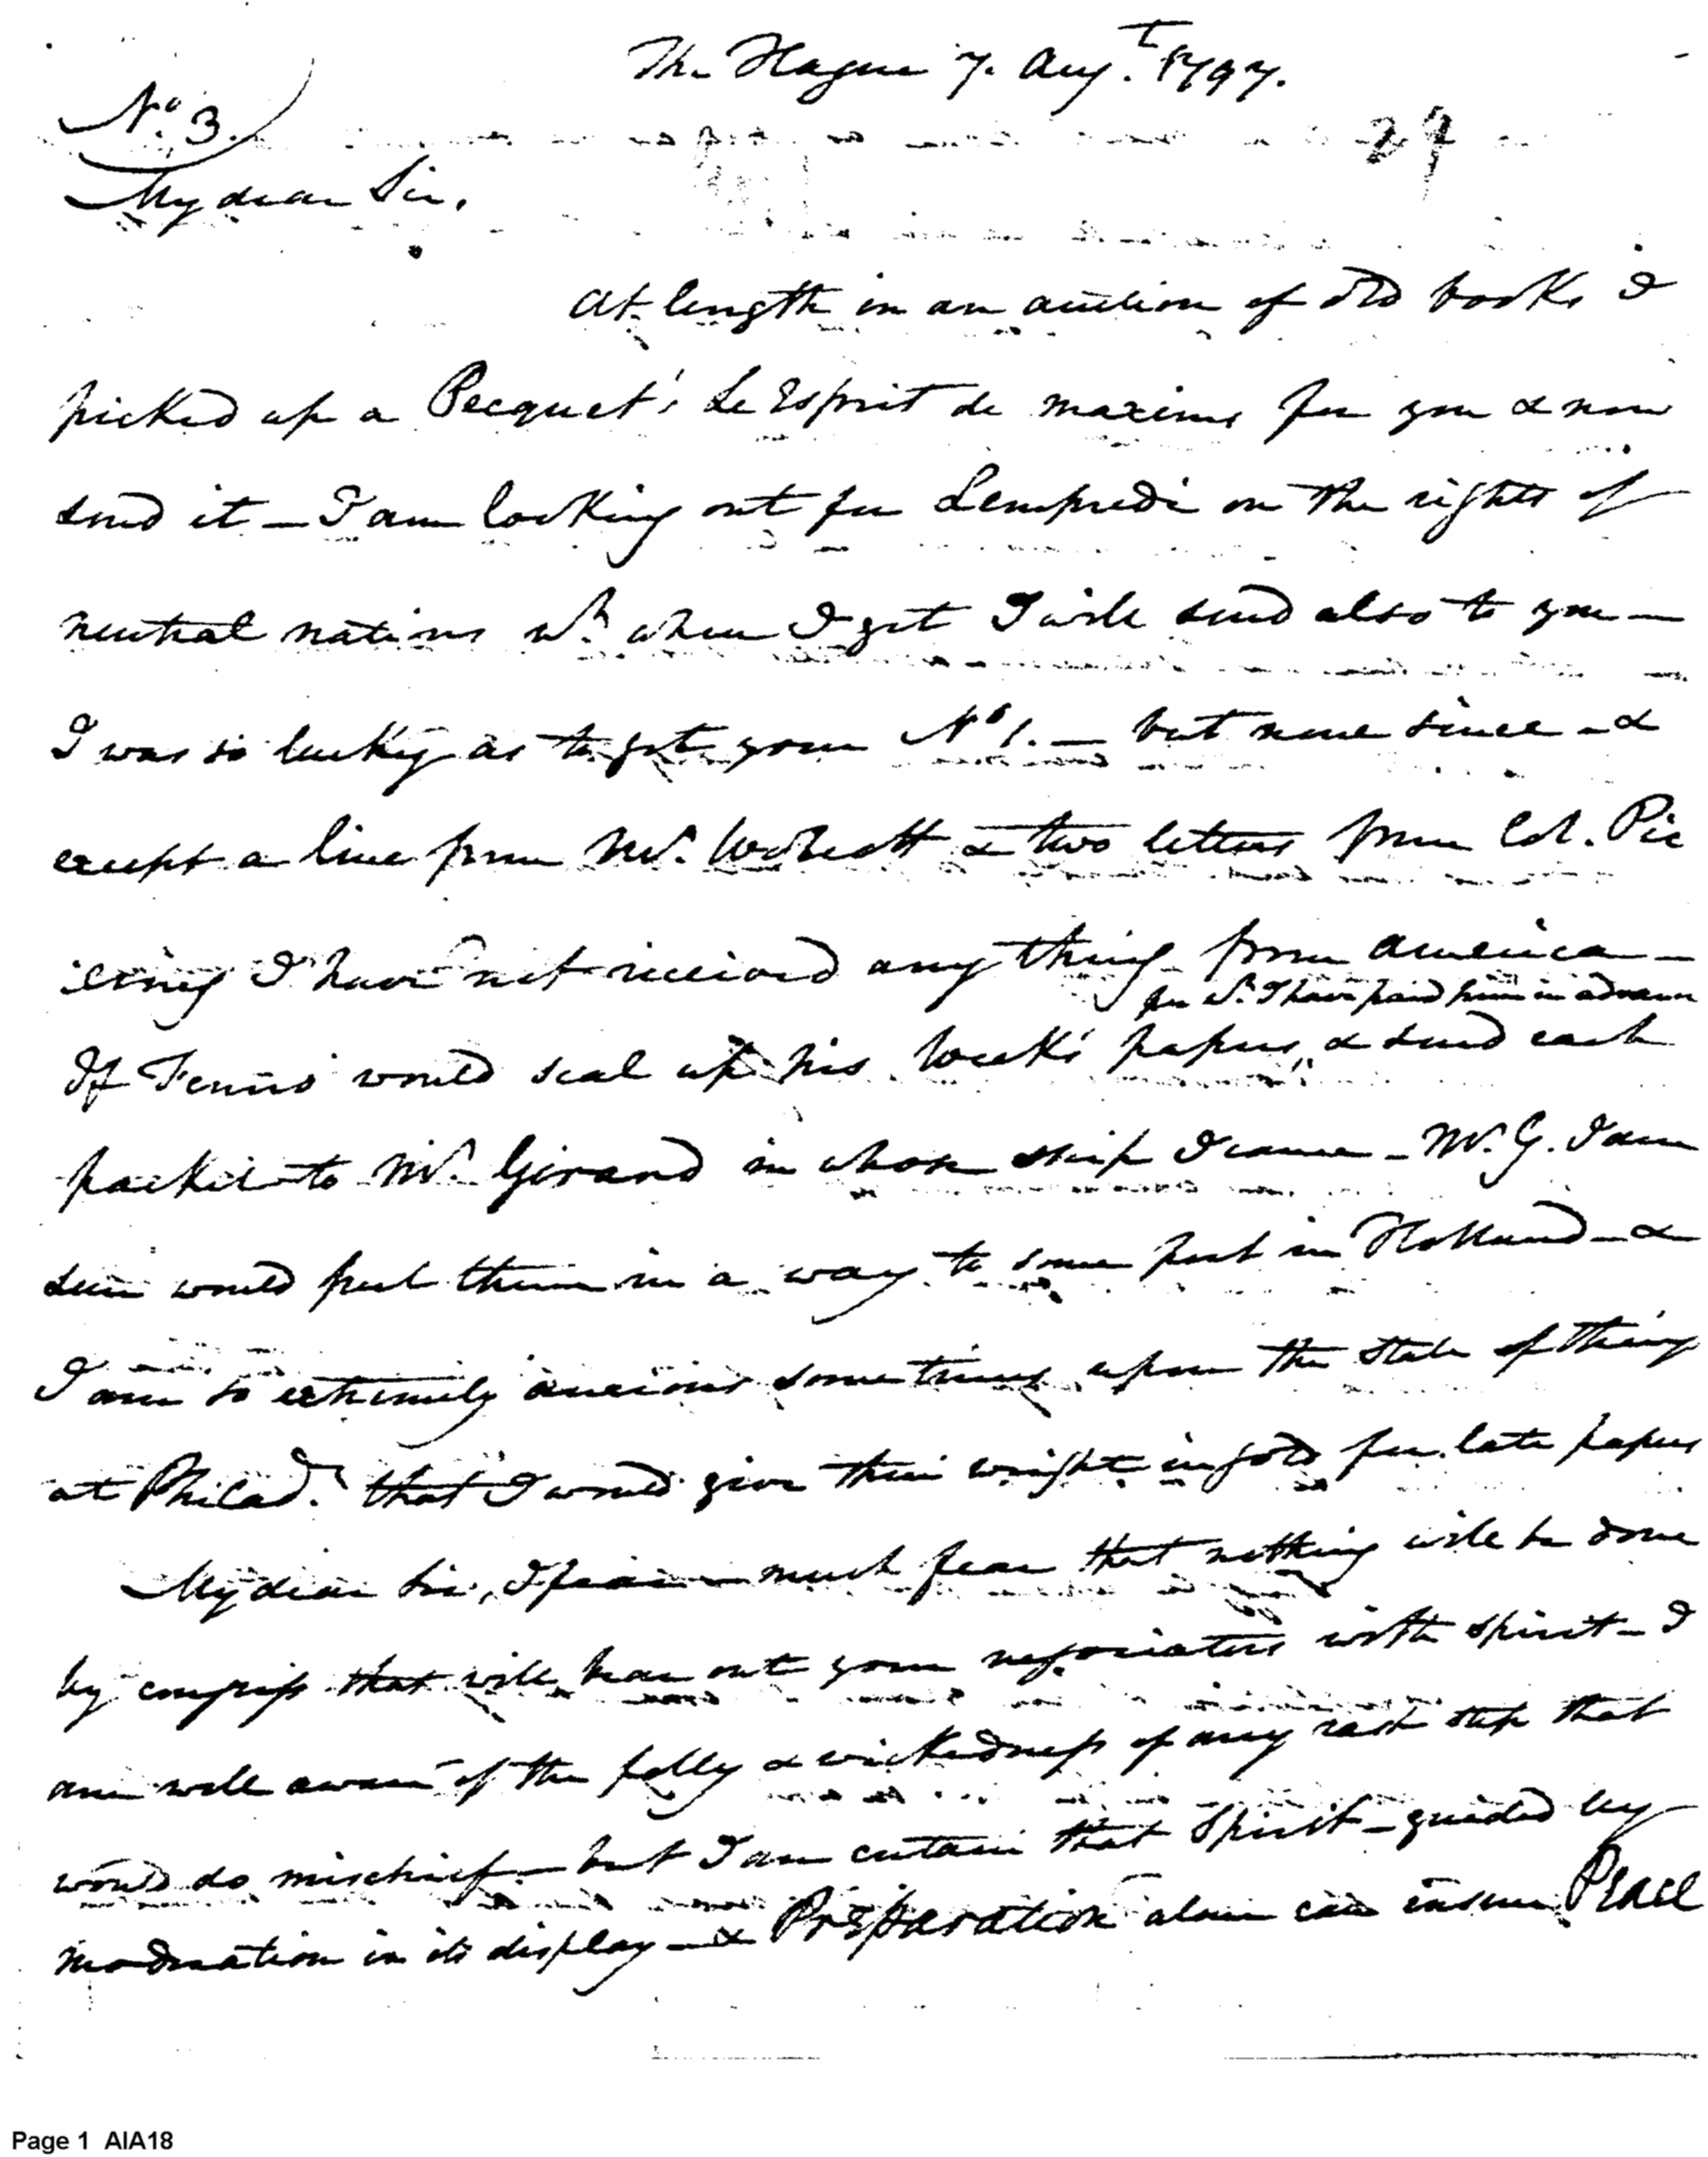 The Hague 7. Augt. 1797.
No. 3.
29
My dear Sir,
At length in an auction of old books I
picked up a Pecquet's Le Esprit de maxims for you & now
send it — I am looking out for Lempredi on the rights of
neutral nations wh. when I get I will send also to you —
I was so lucky as to get your No 1. — but none since — &
except a line from Mr. Wolcott & two letters from Col. Pic
kering I have not received any thing from America —
for wh. I have paid him in advance
If Fenno would seal up his week's papers, & send each
packet to Mr. Girard in whose ship I came — Mr. G. I am
sure would put them in a way to some port in Holland — &
I am so extremely anxious sometimes upon the state of things
at Philad. that I would give their weight in gold for late papers
My dear Sir, I fear much fear that nothing will be done
by congress that will bear out your negociators with spirit — I
am well aware of the folly & wickedness of any rash step that
would do mischief — but I am certain that Spirit — guided by
moderation in its display — & Preparation alone can ensure Peace
Page 1 AIA18